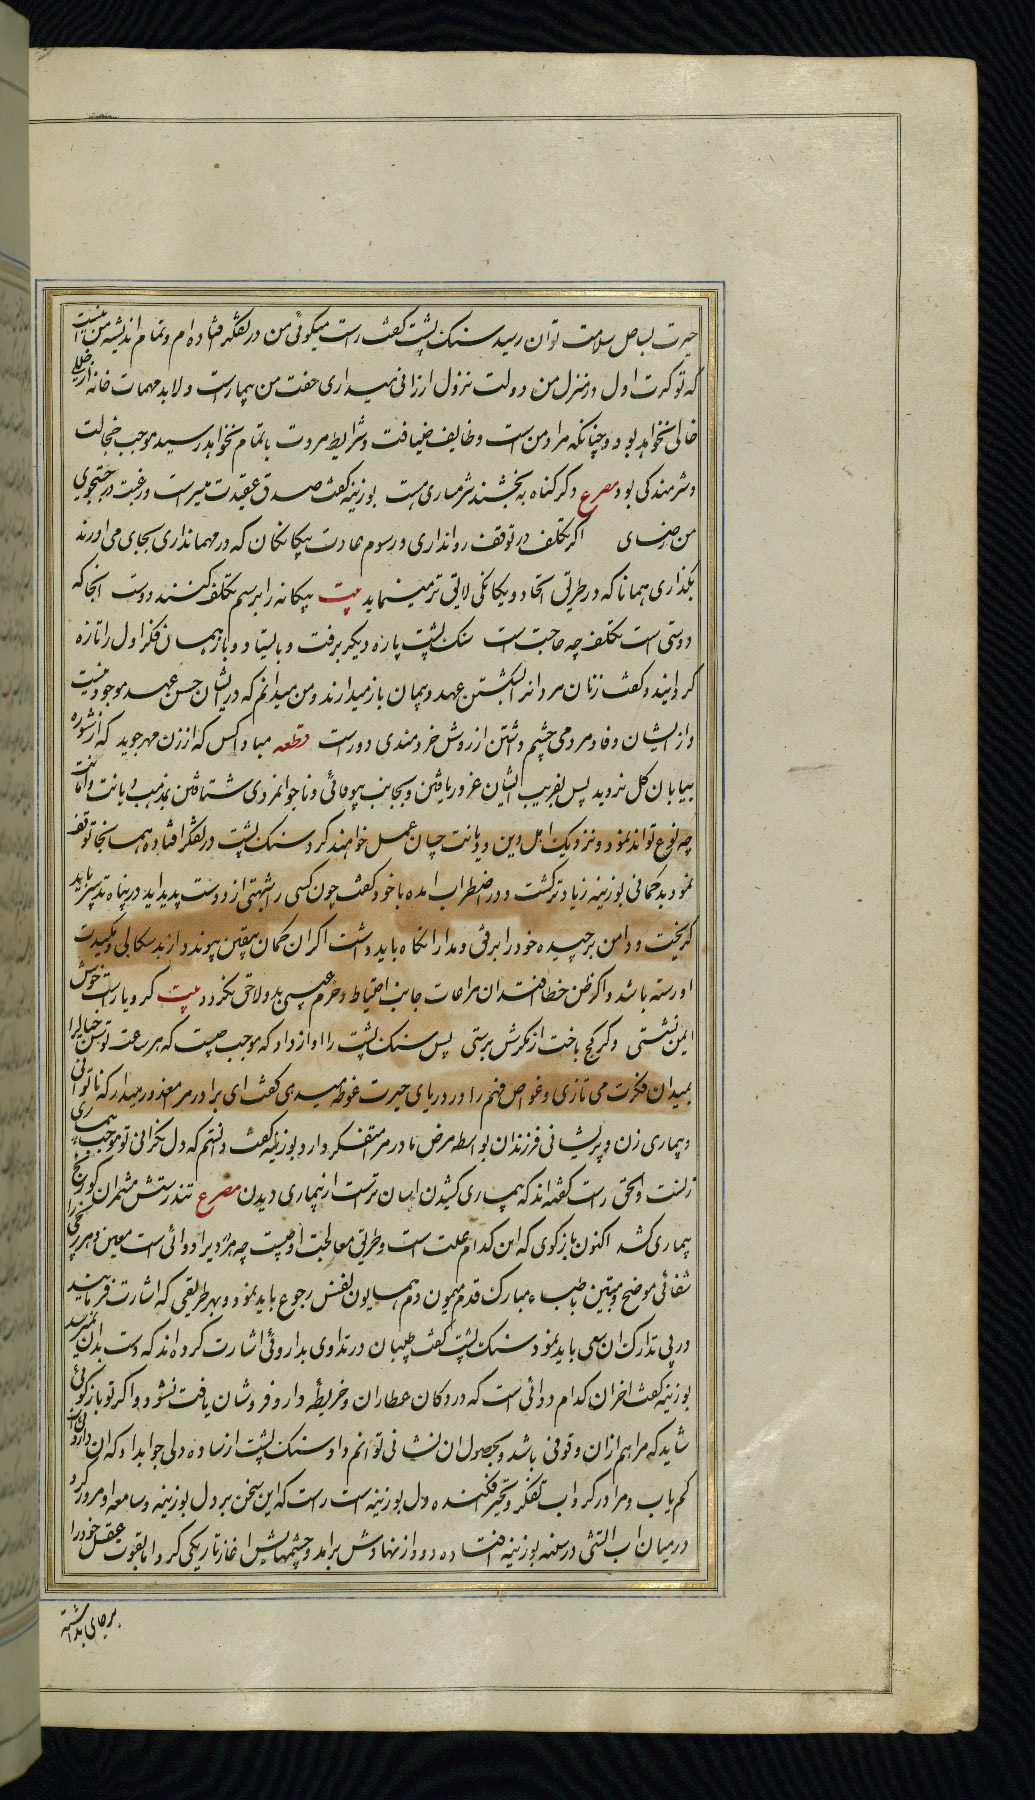 حیرت بساحل سلامت توان رسید سنک پشت کفت راست میکوئی من در تفکر افتاده ام و تمام اندیشه من اینست
که تو کرت اول در منزل من دولت نزول ارزانی میداری جفت من بیمارست و لابد مهمات خانه از خللی
خالی نخواهد بود و چنانکه مراد من است وظایف ضیافت و شرایط مروت بتمام نخواهد رسید موجب خجالت
و شرمندکی بود مصرع وکر کناه به بخشند شرمساری هست بوزینه کفت صدق عقیدت میسرست و رغبت در جستجوی
من رضای اکر تکلف در توقف رواداری و رسوم عادت بیکانکان که در مهمانداری بجای می اورند
بکذاری همانا که در طریق اتحاد و یکانکی لایق تر مینماید بیت بیکانه را برسم تکلف کنند دوست انجا که
دوستی است تکلف چه حاجت است سنک پشت پاره دیکر برفت و بایستاد و باز همان فکر اول را تازه
کردانید و کفت زنان مردانرا بشکستن عهد و پیمان باز میدارند و من میدانم که در ایشان حسن عهد موجود نیست
و از ایشان وفا و مردمی چشم داشتن از روش خردمندی دورست قطعه مبادا کس که از زن مهر جوید که از شوره
بیابان کل نروید پس بفریب ایشان غرور یافتن و بجانب بیوفائی و ناجوانمردی شتافتن بمذهب دیانت و امانت
چه نوع تواند نمود و نزدیک اهل دین و دیانت چسان عمل خواهند کرد سنک پشت در تفکر افتاده همانجا توقف
نمود بدکمانی بوزینه زیادتر کشت و در اضطراب امده با خود کفت چون کسی را شبهتی از دوست پدید اید در پناه تدبیر باید
کریخت و دامن برچیده خود را برفق و مدارا نکاه باید داشت اکر ان کمان بیقین پیوندد از بدسکالی و مکیدت
او رسته باشد و اکر ظن خطا افتد ان مراعات جانب احتیاط و حزم عیبی بدو لاحق نکردد بیت کر و یا راست خوش
ایمن نشستی وکر کج باخت از مکرش برستی پس سنک پشت را اواز داد که موجب چیست که هر ساعت توسن خیالرا
بمیدان فکرت می تازی و غواص فهم را در دریای حیرت غوطه میدهی کفت ای برادر مرا معذور میدار که ناتوانی
و بیماری زن و پریشانی فرزندان بواسطه مرض مادر مرا متفکر دارد بوزینه کفت دانستم که دل نکرانی تو بموجب بیماری
زنست و الحق راست کفته اند که بیماری کشیدن اسان ترست از بیماری دیدن مصرع تندرستش مشمران کو رنج
بیماری کشد اکنون بازکوی که این کدام علت است و طریق معالجت او چیست چه هر دردیرا دوائی است معین و هر رنجی را
شفائی موضح و مبین باطباء مبارک قدم میمون دم همایون نفس رجوع باید نمود و بهر طریقی که اشارت فرمایند
در پی تدارک ان سعی باید نمود سنک پشت کفت طبیبان در تداوی بداروئی اشارت کرده اند که دست بدان نمیرسد
بوزینه کفت اخر ان کدام دوائی است که در دکان عطاران و خریطه دارو فروشان یافت نشود و اکر تو بازکوئی
شاید که مرا هم از ان وقوفی باشد و بحصول ان نشانی توانم داد سنک پشت از ساده دلی جوابداد که ان داروی
کم یاب و مرا در کرداب تفکر و تحیر افکنده دل بوزینه است راست که این سخن بر دل بوزینه و سامعه او مرور کرد
در میان اب اتشی در سینه بوزینه افتاده دود از نهادش برامد و چشمهایش اغاز تاریکی کرد اما بقوت عقل خود را
بر جای بداشته